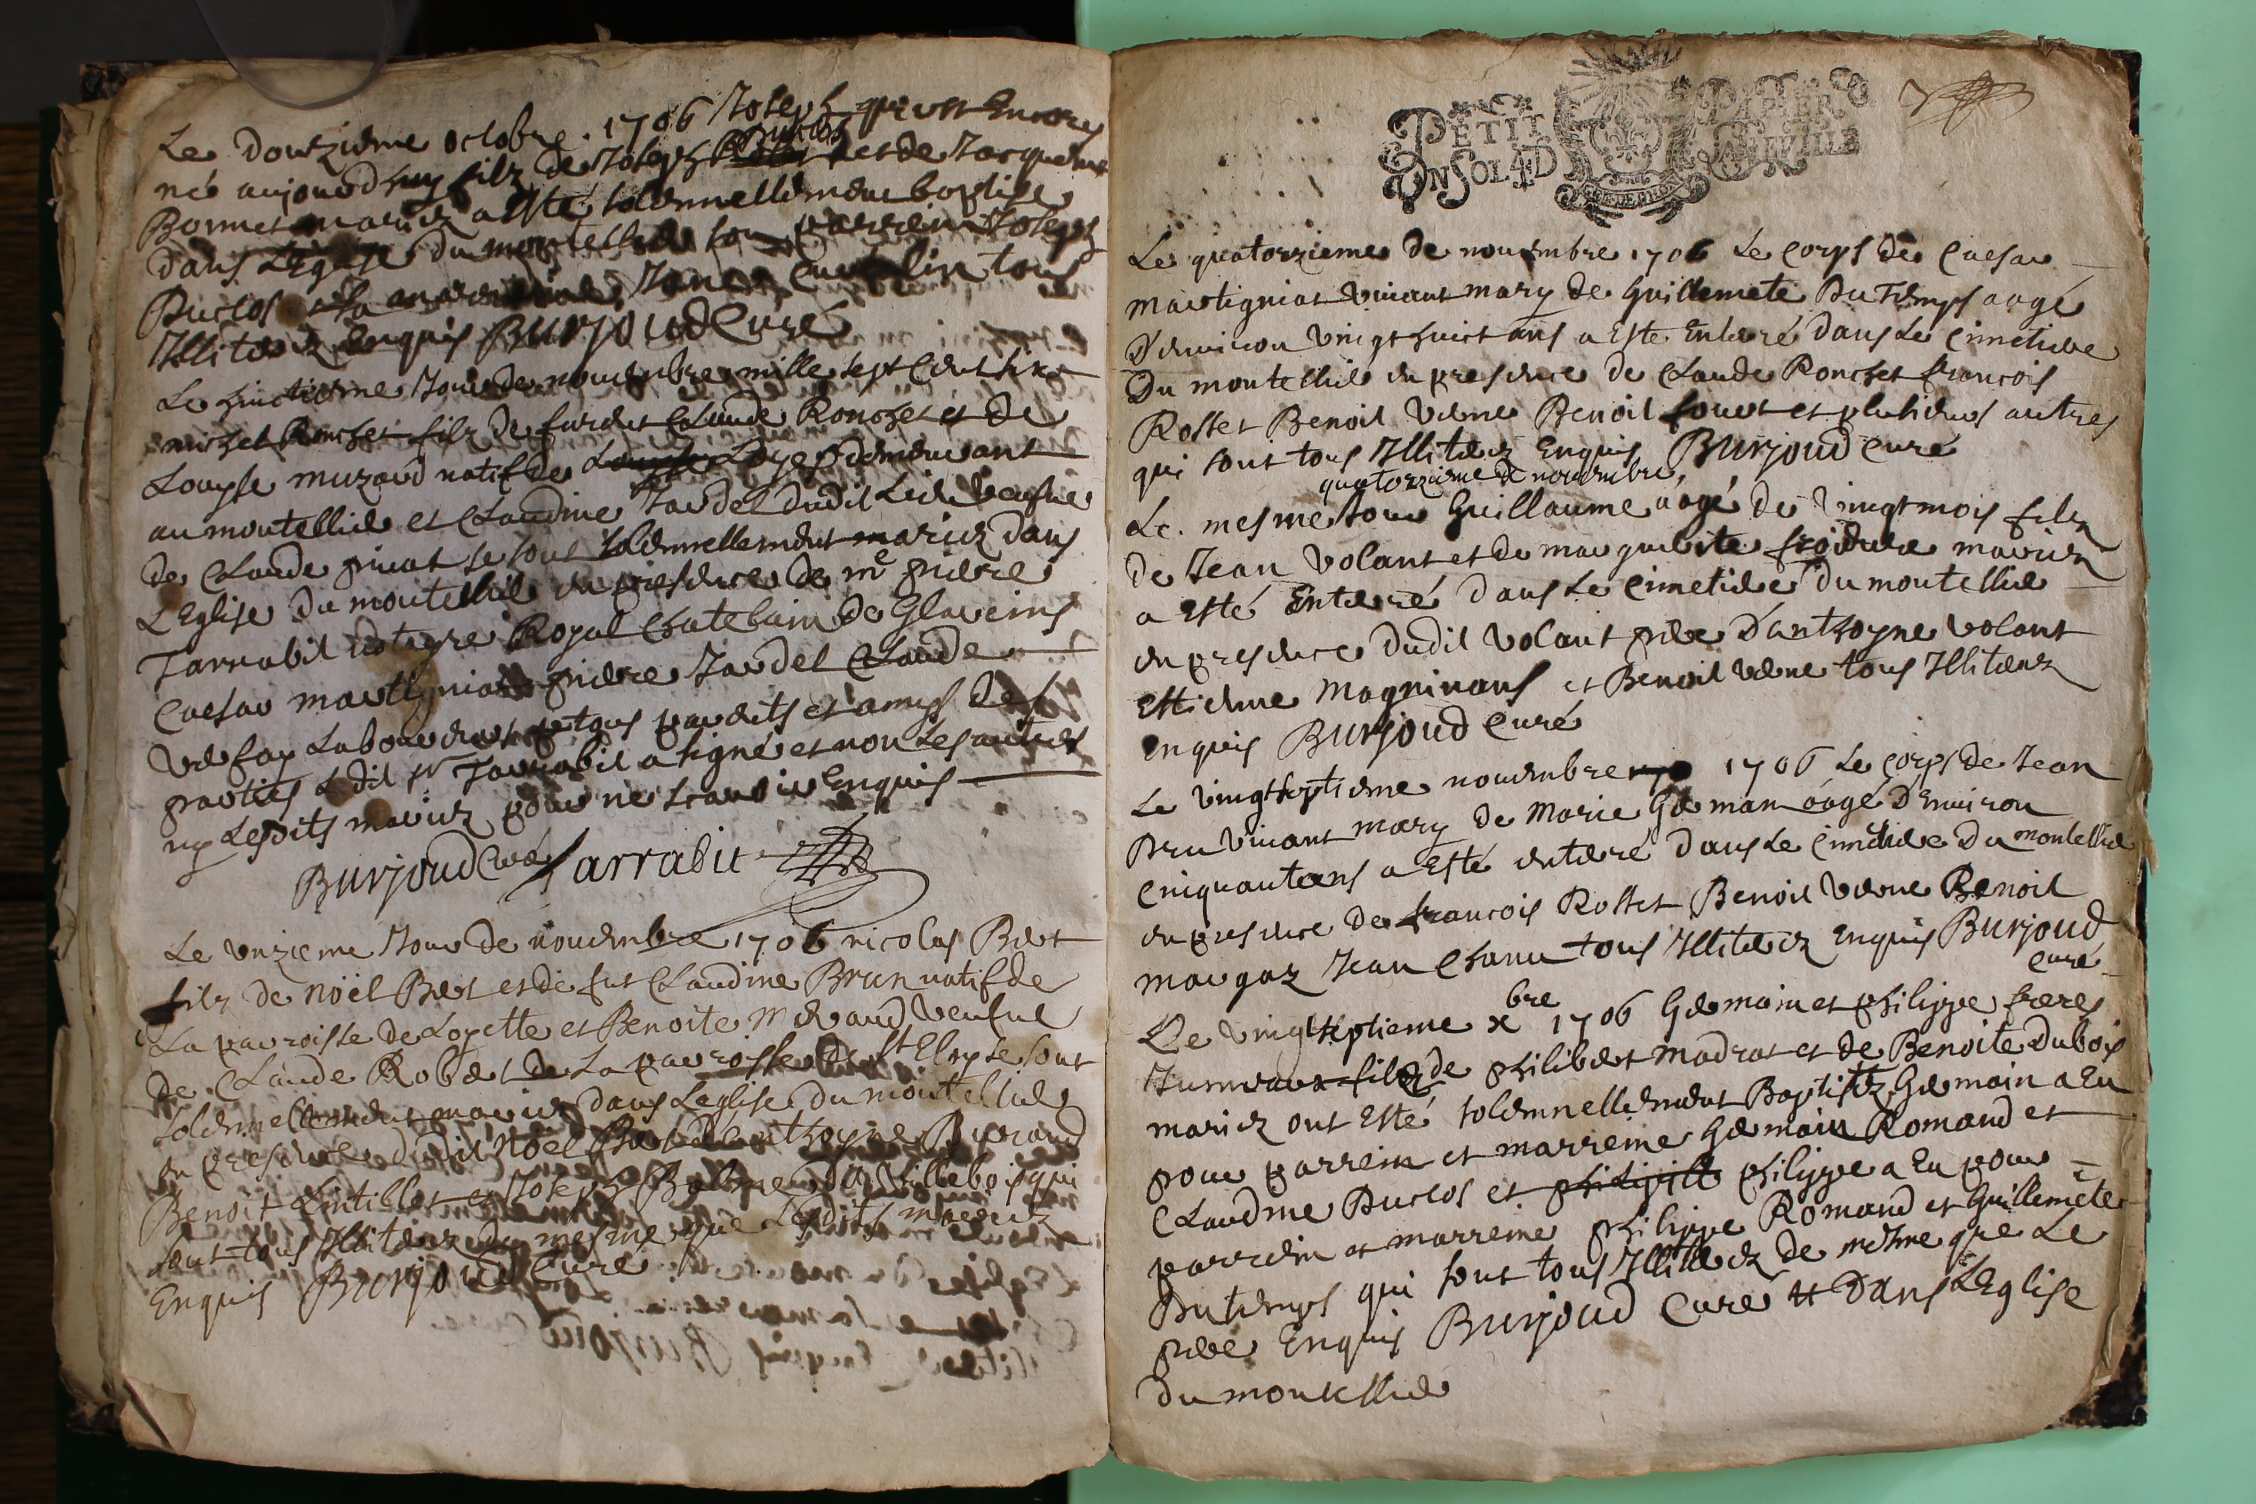 Le douzieme octobre 1706 Joseph qui est
né aujourdhuy filz de Joseph Buclos et de Jacqueme
Bonnet mariez a esté solennellement baptisé
dans L'Eglise du montellier son parrein Joseph
Buclos et sa marreine Jane tous
Illiterez Enquis Burjoud Curé
Le huictieme Jour de novembre mille sept cent six
michel Ronchet filz de furent Claude Ronchet et de
Louyse muzard natif de Loyes demeurant
au montellier et Claudine Jardel dudit Lieu veufue
de Claude privat se sont solennellement mariez dans
L'Eglise du montellier en presence de me pierre
Jarrabit notayre Royal Chatelain de Glareins
Caesar martigniat pierre Jardel Claude
Laboureurs tous parents et amys des
parties Ledit sr Jarrabit a signé et non Les autres
ny Lesdits mariez pour ne scavoir Enquis
Burjoud Curé Jarrabit
Le unzieme Jour de novembre 1706 nicolas Bert
filz de noël Bert et de fut Claudine Brun natif de
La parroisse de Loyette et Benoite meraud veufue
de Claude Robert de La parroisse de St Eloy se sont
solennellement mariez dans L'eglise du montellier
en presence dudit Noel Bert Anthoyne
Benoit et Joseph de Villebois qui
sont tous Illiterez de mesme que Lesdits mariez
Enquis Burjoud Curé
PETIT PAPIER
UN SOL 4 D LA FEUILLE
Le quatorzieme de novembre 1706 Le Corps de Caesar
martigniat vivant mary de Guillemete Dutemps aagé
d'environ vingt huict ans a esté Enterré dans Le Cimetiere
Du montellier en presence de Claude Ronchet françois
Rosset Benoit verne Benoit et plusieurs autres
qui sont tous Illiterez Enquis Burjoud Curé
quatorzieme de novembre
Le mesme Jour Guillaume aagé de vingt mois filz
de Jean Volant et de marguerite froidure mariez
a Esté Enterré dans Le Cimetiere du montellier
en presence dudit Volant pere d'anthoyne volant
Estienne Magninans et Benoit verne tous Illiterez
enquis Burjoud Curé
Le vingtseptieme novembre 1706 Le Corps de Jean
Bru vivant mary de Marie Germain aagé d'Environ
Cinquante ans a Esté enterré dans Le Cimetiere Du montellier
en presence de françois Rosset Benoit verne Benoit
margaz Jean Chanu tous Illiterez Enquis Burjoud
Curé
Le vingtseptieme xbre 1706 Germain et philippe freres
Jumeaux filz de philibert madrat et de Benoite Dubois
mariez ont Esté solemnellement Baptisez Germain a Eu
pour parrein et marreine Germain Romand et
Claudine Buclos et philippe a Eu pour
parrein et marreine philippe Romand et Guillemete
Dutemps qui sont tous Illiterez de mesme que Le
pere Enquis Burjoud Curé Dans L'Eglise
du montellier